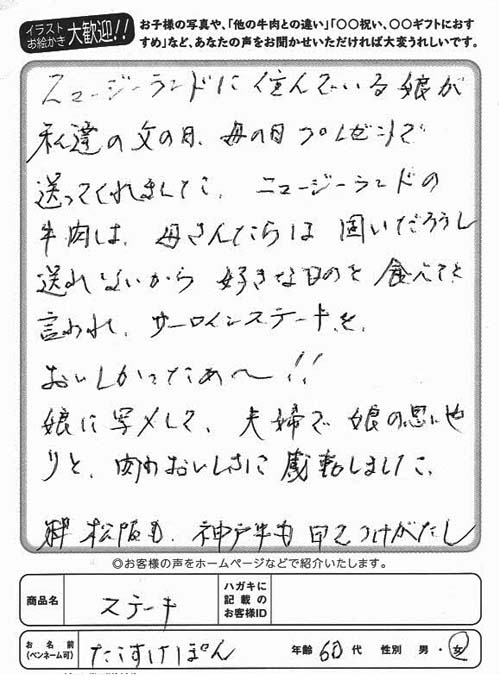 イラスト
お絵かき 大歓迎!!
お子様の写真や、「他の牛肉との違い」「〇〇祝い、〇〇ギフトにおす
すめ」など、あなたの声をお聞かせいただければ大変うれしいです。
ニュージーランドに住んでいる娘が
私達の父の日、母の日プレゼントで
送ってくれました。ニュージーランドの
牛肉は、母さんたちは 固いだろうし
送れないから 好きなものを食べてと
言われて、サーロインステーキを、
おいしかったぁ〜!!
娘に写メして、夫婦で 娘の思いや
りと、肉のおいしさに感動しました。
松阪も、神戸牛も 甲乙つけがたし
◎お客様の声をホームページなどで紹介いたします。
商品名 ステーキ
ハガキに
記載の
お客様ID
お名前
(ペンネーム可) たこすけぽん 年齢 60代 性別 男・女